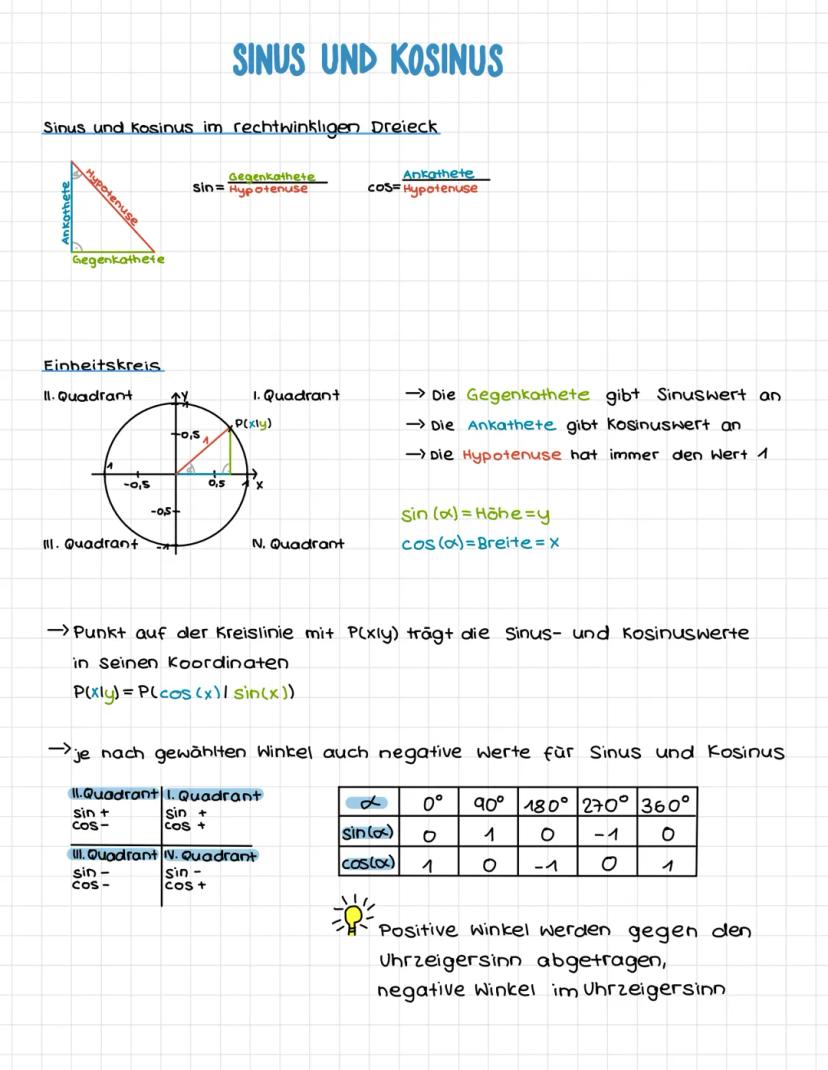 SINUS UND KOSINUS
Sinus und Kosinus im rechtwinkligen Dreieck
Ankathete
Hypotenuse
Gegenkathete
sin = Gegenkathete / Hypotenuse
cos = Ankathete / Hypotenuse
Einheitskreis
II. Quadrant
I. Quadrant
III. Quadrant
IV. Quadrant
y
1
0,5
1
P(x|y)
-1
-0,5
0,5
1
x
-0,5
-1
→ Die Gegenkathete gibt Sinuswert an
→ Die Ankathete gibt Kosinuswert an
→ Die Hypotenuse hat immer den Wert 1
sin (α) = Höhe = y
cos (α) = Breite = x
→ Punkt auf der Kreislinie mit P(x|y) trägt die Sinus- und Kosinuswerte
in seinen Koordinaten
P(x|y) = P(cos (x) | sin(x))
→ je nach gewählten Winkel auch negative Werte für Sinus und Kosinus
II. Quadrant | I. Quadrant
sin + | sin +
cos - | cos +
III. Quadrant | IV. Quadrant
sin - | sin -
cos - | cos +
α | 0° | 90° | 180° | 270° | 360°
sin(α) | 0 | 1 | 0 | -1 | 0
cos(α) | 1 | 0 | -1 | 0 | 1
Positive Winkel werden gegen den
Uhrzeigersinn abgetragen,
negative Winkel im Uhrzeigersinn